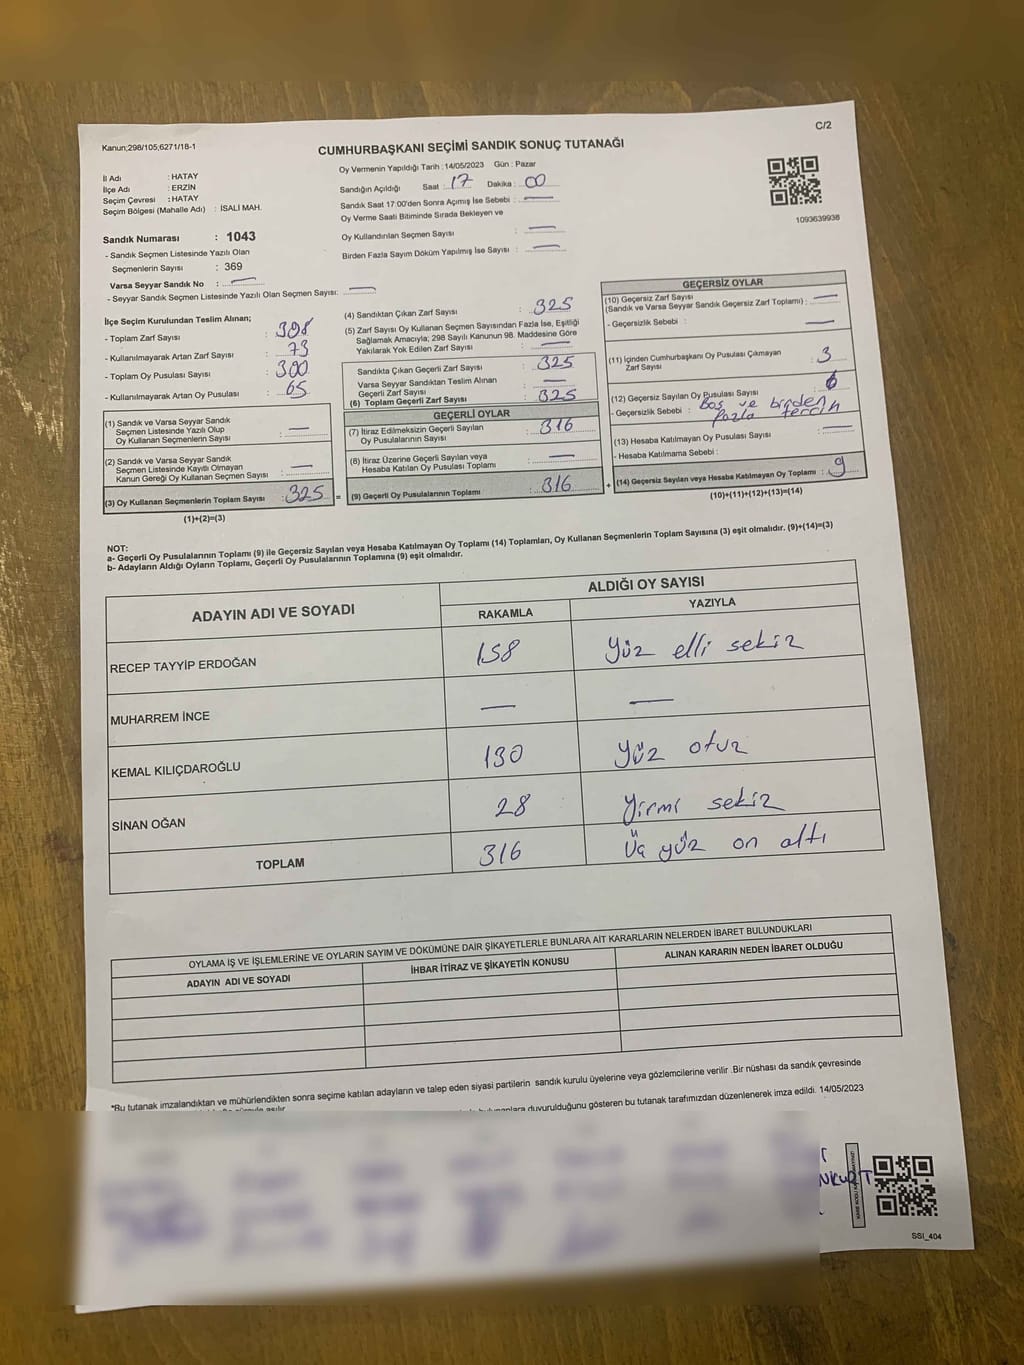 Kanun;298/105;6271/18-1
C/2
CUMHURBAŞKANI SEÇİMİ SANDIK SONUÇ TUTANAĞI
İl Adı : HATAY
İlçe Adı : ERZİN
Seçim Çevresi : HATAY
Seçim Bölgesi (Mahalle Adı) : İSALİ MAH.
Sandık Numarası : 1043
- Sandık Seçmen Listesinde Yazılı Olan
Seçmenlerin Sayısı : 369
Varsa Seyyar Sandık No : —
- Seyyar Sandık Seçmen Listesinde Yazılı Olan Seçmen Sayısı: —
Oy Vermenin Yapıldığı Tarih : 14/05/2023 Gün : Pazar
Sandığın Açıldığı Saat : 17 Dakika : 00
Sandık Saat 17:00'den Sonra Açımış İse Sebebi : —
Oy Verme Saati Bitiminde Sırada Bekleyen ve
Oy Kullandırılan Seçmen Sayısı : —
Birden Fazla Sayım Döküm Yapılmış İse Sayısı : —
1093639938
İlçe Seçim Kurulundan Teslim Alınan;
- Toplam Zarf Sayısı : 398
- Kullanılmayarak Artan Zarf Sayısı : 73
- Toplam Oy Pusulası Sayısı : 300
- Kullanılmayarak Artan Oy Pusulası : 65
(1) Sandık ve Varsa Seyyar Sandık
Seçmen Listesinde Yazılı Olup
Oy Kullanan Seçmenlerin Sayısı : —
(2) Sandık ve Varsa Seyyar Sandık
Seçmen Listesinde Kayıtlı Olmayan
Kanun Gereği Oy Kullanan Seçmen Sayısı : —
(3) Oy Kullanan Seçmenlerin Toplam Sayısı : 325
(1)+(2)=(3)
=
(4) Sandıktan Çıkan Zarf Sayısı : 325
(5) Zarf Sayısı Oy Kullanan Seçmen Sayısından Fazla İse, Eşitliği
Sağlamak Amacıyla; 298 Sayılı Kanunun 98. Maddesine Göre
Yakılarak Yok Edilen Zarf Sayısı : —
Sandıkta Çıkan Geçerli Zarf Sayısı : 325
Varsa Seyyar Sandıktan Teslim Alınan
Geçerli Zarf Sayısı : —
(6) Toplam Geçerli Zarf Sayısı : 325
GEÇERLİ OYLAR
(7) İtiraz Edilmeksizin Geçerli Sayılan
Oy Pusulalarının Sayısı : 316
(8) İtiraz Üzerine Geçerli Sayılan veya
Hesaba Katılan Oy Pusulası Toplamı : —
(9) Geçerli Oy Pusulalarının Toplamı : 316
+
GEÇERSİZ OYLAR
(10) Geçersiz Zarf Sayısı
(Sandık ve Varsa Seyyar Sandık Geçersiz Zarf Toplamı) : —
- Geçersizlik Sebebi : —
(11) İçinden Cumhurbaşkanı Oy Pusulası Çıkmayan
Zarf Sayısı : 3
(12) Geçersiz Sayılan Oy Pusulası Sayısı : 6
- Geçersizlik Sebebi : Boş ve birden
fazla tercih
(13) Hesaba Katılmayan Oy Pusulası Sayısı : —
- Hesaba Katılmama Sebebi :
(14) Geçersiz Sayılan veya Hesaba Katılmayan Oy Toplamı : 9
(10)+(11)+(12)+(13)=(14)
NOT:
a- Geçerli Oy Pusulalarının Toplamı (9) ile Geçersiz Sayılan veya Hesaba Katılmayan Oy Toplamı (14) Toplamları, Oy Kullanan Seçmenlerin Toplam Sayısına (3) eşit olmalıdır. (9)+(14)=(3)
b- Adayların Aldığı Oyların Toplamı, Geçerli Oy Pusulalarının Toplamına (9) eşit olmalıdır.
ADAYIN ADI VE SOYADI ALDIĞI OY SAYISI
RAKAMLA YAZIYLA
RECEP TAYYİP ERDOĞAN 158 Yüz elli sekiz
MUHARREM İNCE — —
KEMAL KILIÇDAROĞLU 130 Yüz otuz
SİNAN OĞAN 28 Yirmi sekiz
TOPLAM 316 Üç yüz on altı
OYLAMA İŞ VE İŞLEMLERİNE VE OYLARIN SAYIM VE DÖKÜMÜNE DAİR ŞİKAYETLERLE BUNLARA AİT KARARLARIN NELERDEN İBARET BULUNDUKLARI
ADAYIN ADI VE SOYADI İHBAR İTİRAZ VE ŞİKAYETİN KONUSU ALINAN KARARIN NEDEN İBARET OLDUĞU
*Bu tutanak imzalandıktan ve mühürlendikten sonra seçime katılan adayların ve talep eden siyasi partilerin sandık kurulu üyelerine veya gözlemcilerine verilir .Bir nüshası da sandık çevresinde
duyurulduğunu gösteren bu tutanak tarafımızdan düzenlenerek imza edildi. 14/05/2023
SSI_404